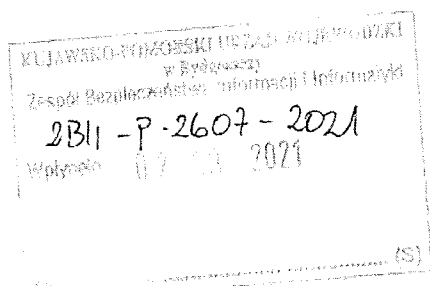 KUJAWSKO-POMORSKI URZĄD WOJEWÓDZKI
w Bydgoszczy
Zespół Bezpieczeństwa Informacji i Informatyki
2BII - P. 2607 - 2021
Wpłynęło 2021
(S)